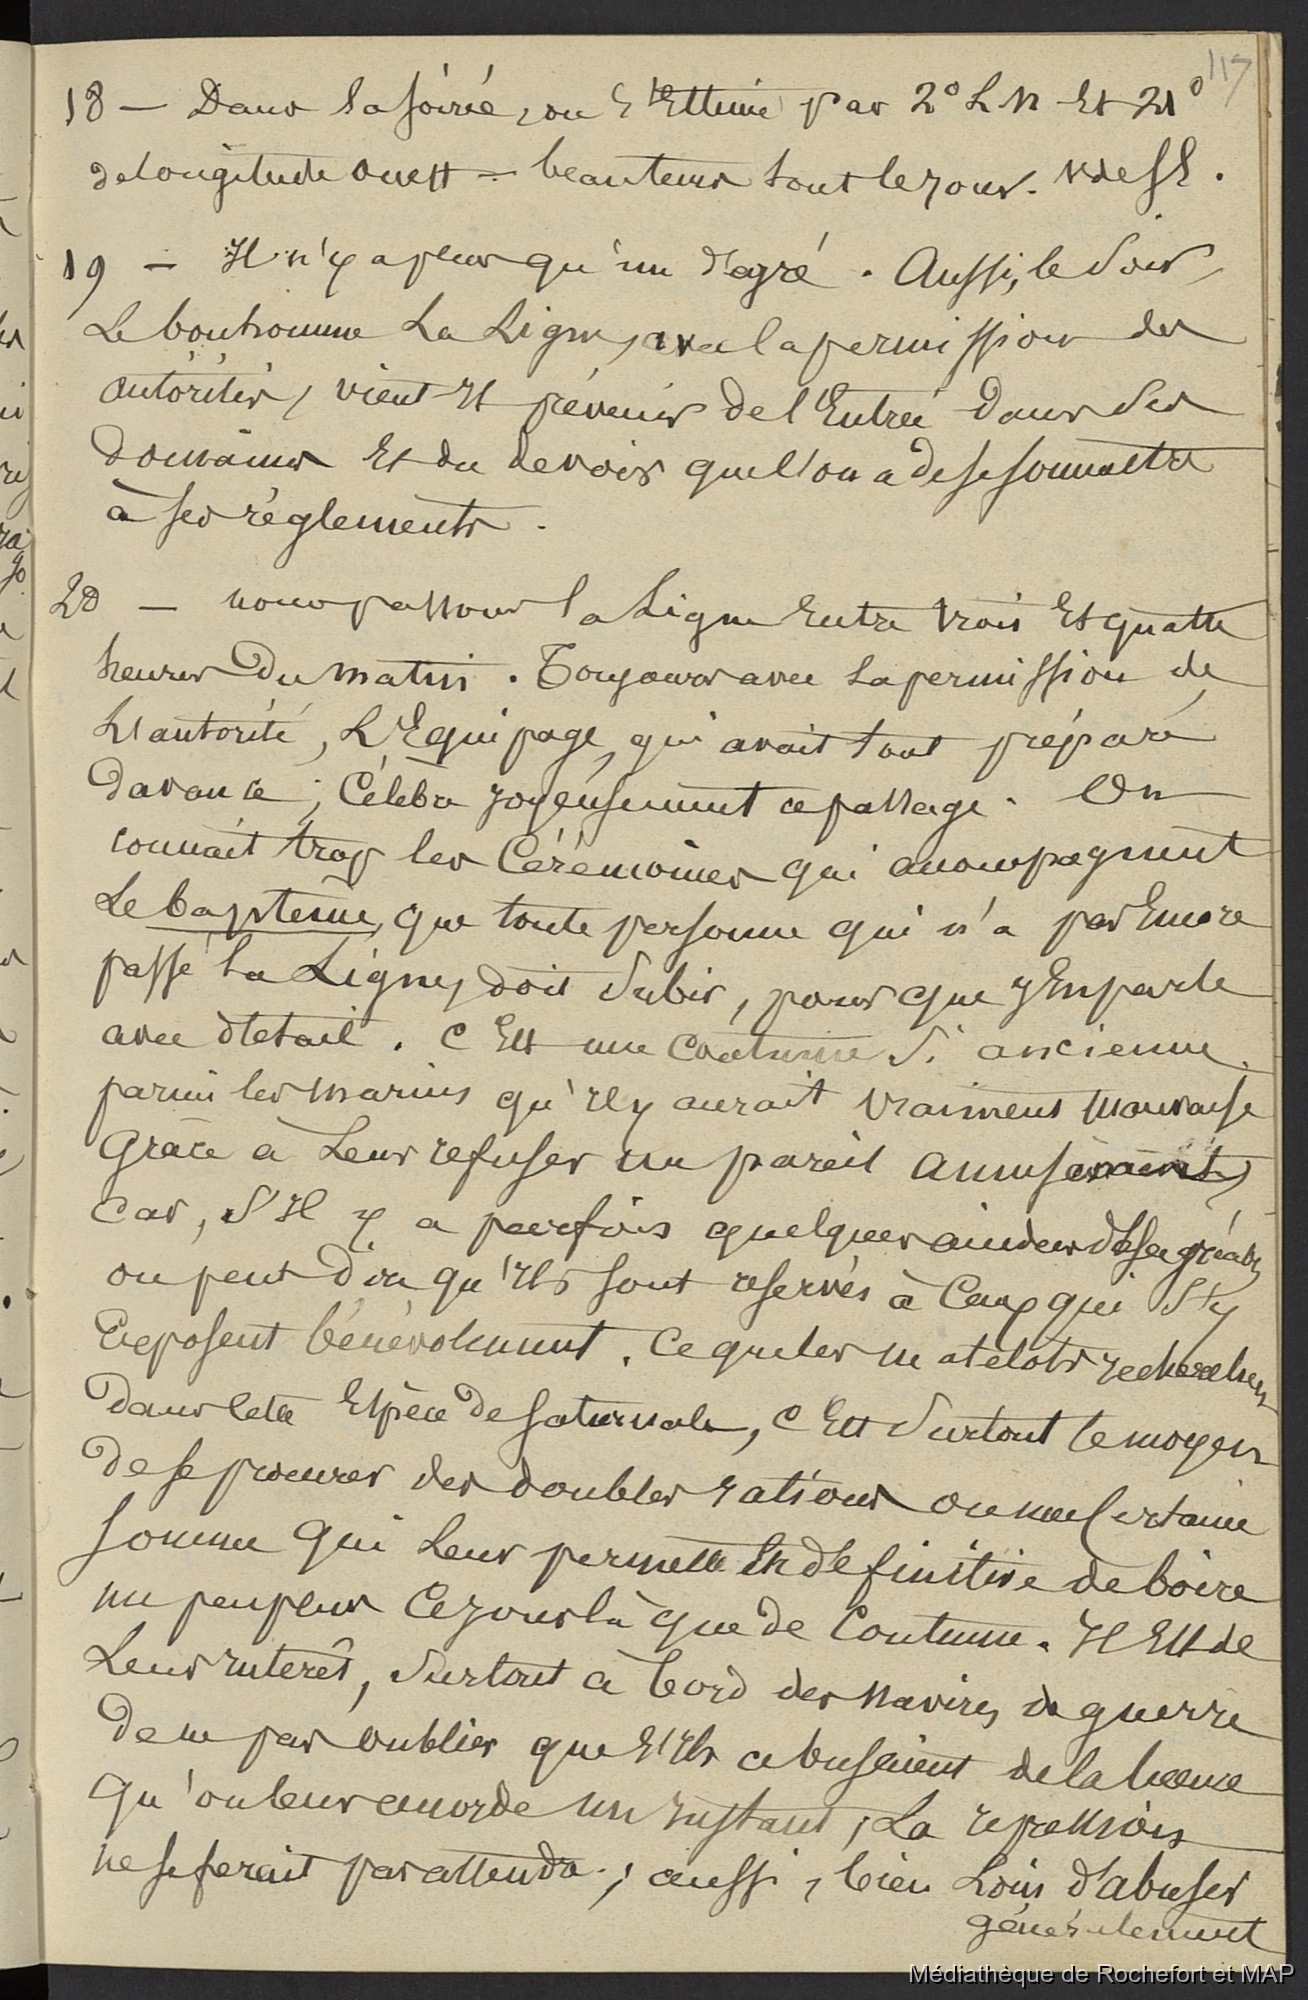 117
18 — Dans la soirée, on s'estime par 2° L N et 21°
de longitude ouest = beau temps tout le jour. V de SE.
19 — Il n'y a plus qu'un degré. Aussi, le soir,
Le bonhomme La Ligne, avec la permission des
autorités, vient-il prévenir de l'Entrée dans ses
domaines et du devoir que l'on a de se soumettre
à ses règlements.
20 — nous passons la Ligne entre trois et quatre
heures du matin. Toujours avec la permission de
l'autorité, L'Equipage, qui avait tout préparé
d'avance, célébra joyeusement ce passage. On
connait trop les Cérémonies qui accompagnent
Le baptême, que toute personne qui n'a pas Encore
passé la Ligne, doit subir, pour que j'En parle
avec détail. C'Est une coutume si ancienne
parmi les marins qu'il y aurait vraiment mauvaise
Grâce à Leur refuser un pareil amusement,
Car, s'Il y a parfois quelques incidens désagréables
on peut dire qu'ils sont réservés à Ceux qui s'y
Exposent bénévolement. Ce que les matelots recherchent
dans cette Espèce de saturnale, c'Est surtout le moyen
de se procurer des doubles rations ou une Certaine
somme qui Leur permette En définitive de boire
un peu plus Ce jour là que de Coutume. Il Est de
Leur interêt, surtout à bord des navires de guerre
de ne pas oublier que s'ils abusaient de la licence
qu'on leur accorde un instant, La repression
ne se ferait pas attendre; aussi, bien Loin d'abuser
généralement
Médiathèque de Rochefort et MAP